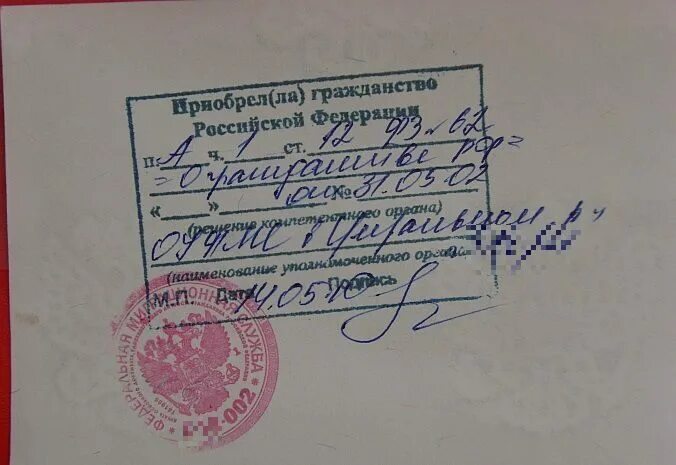 Приобрел(ла) гражданство
Российской Федерации
п. А ч. 1 ст. 12 ФЗ № 62
"О гражданстве РФ"
«     » от № 31.05.02
(решение компетентного органа)
ОУФМС в Центральном р-
(наименование уполномоченного органа)
М.П. Дата 14.05.10 Подпись
* ФЕДЕРАЛЬНАЯ МИГРАЦИОННАЯ СЛУЖБА *
-002